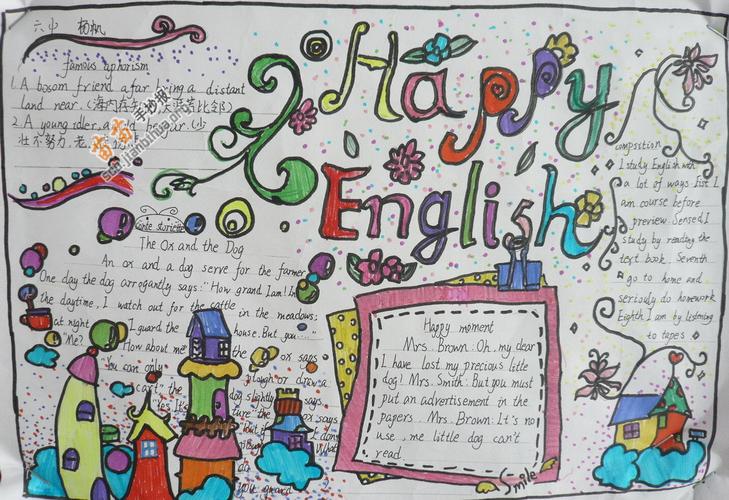 六中 杨帆
famous aphorism
1. A bosom friend afar bring a distant
land near. (海内存知己,天涯若比邻)
2. A young idler, a old
壮不努力,老
Happy
English
Conte storiette
The Ox and the Dog
An ox and a dog serve for the farmer
One day the dog arrogantly says: "How grand I am! In
the daytime, I watch out for the cattle in the meadows;
at night I guard the house. But you...."
"Me? How about me the ox says
"You can only plough or draw a
cart" the dog slightly says
"Yes It's
Happy moment
Mrs. Brown: Oh, my dear
I have lost my precious little
dog! Mrs. Smith: But you must
put an advertisement in the
papers Mrs. Brown: It's no
use, me little dog can't
read.
Smile
composition
I study English with
a lot of ways. Fist I
am course before
preview. Sensed I
study by reading the
text book. Seventh
go to home and
seriously do homework
Eighth I am by listening
to tapes